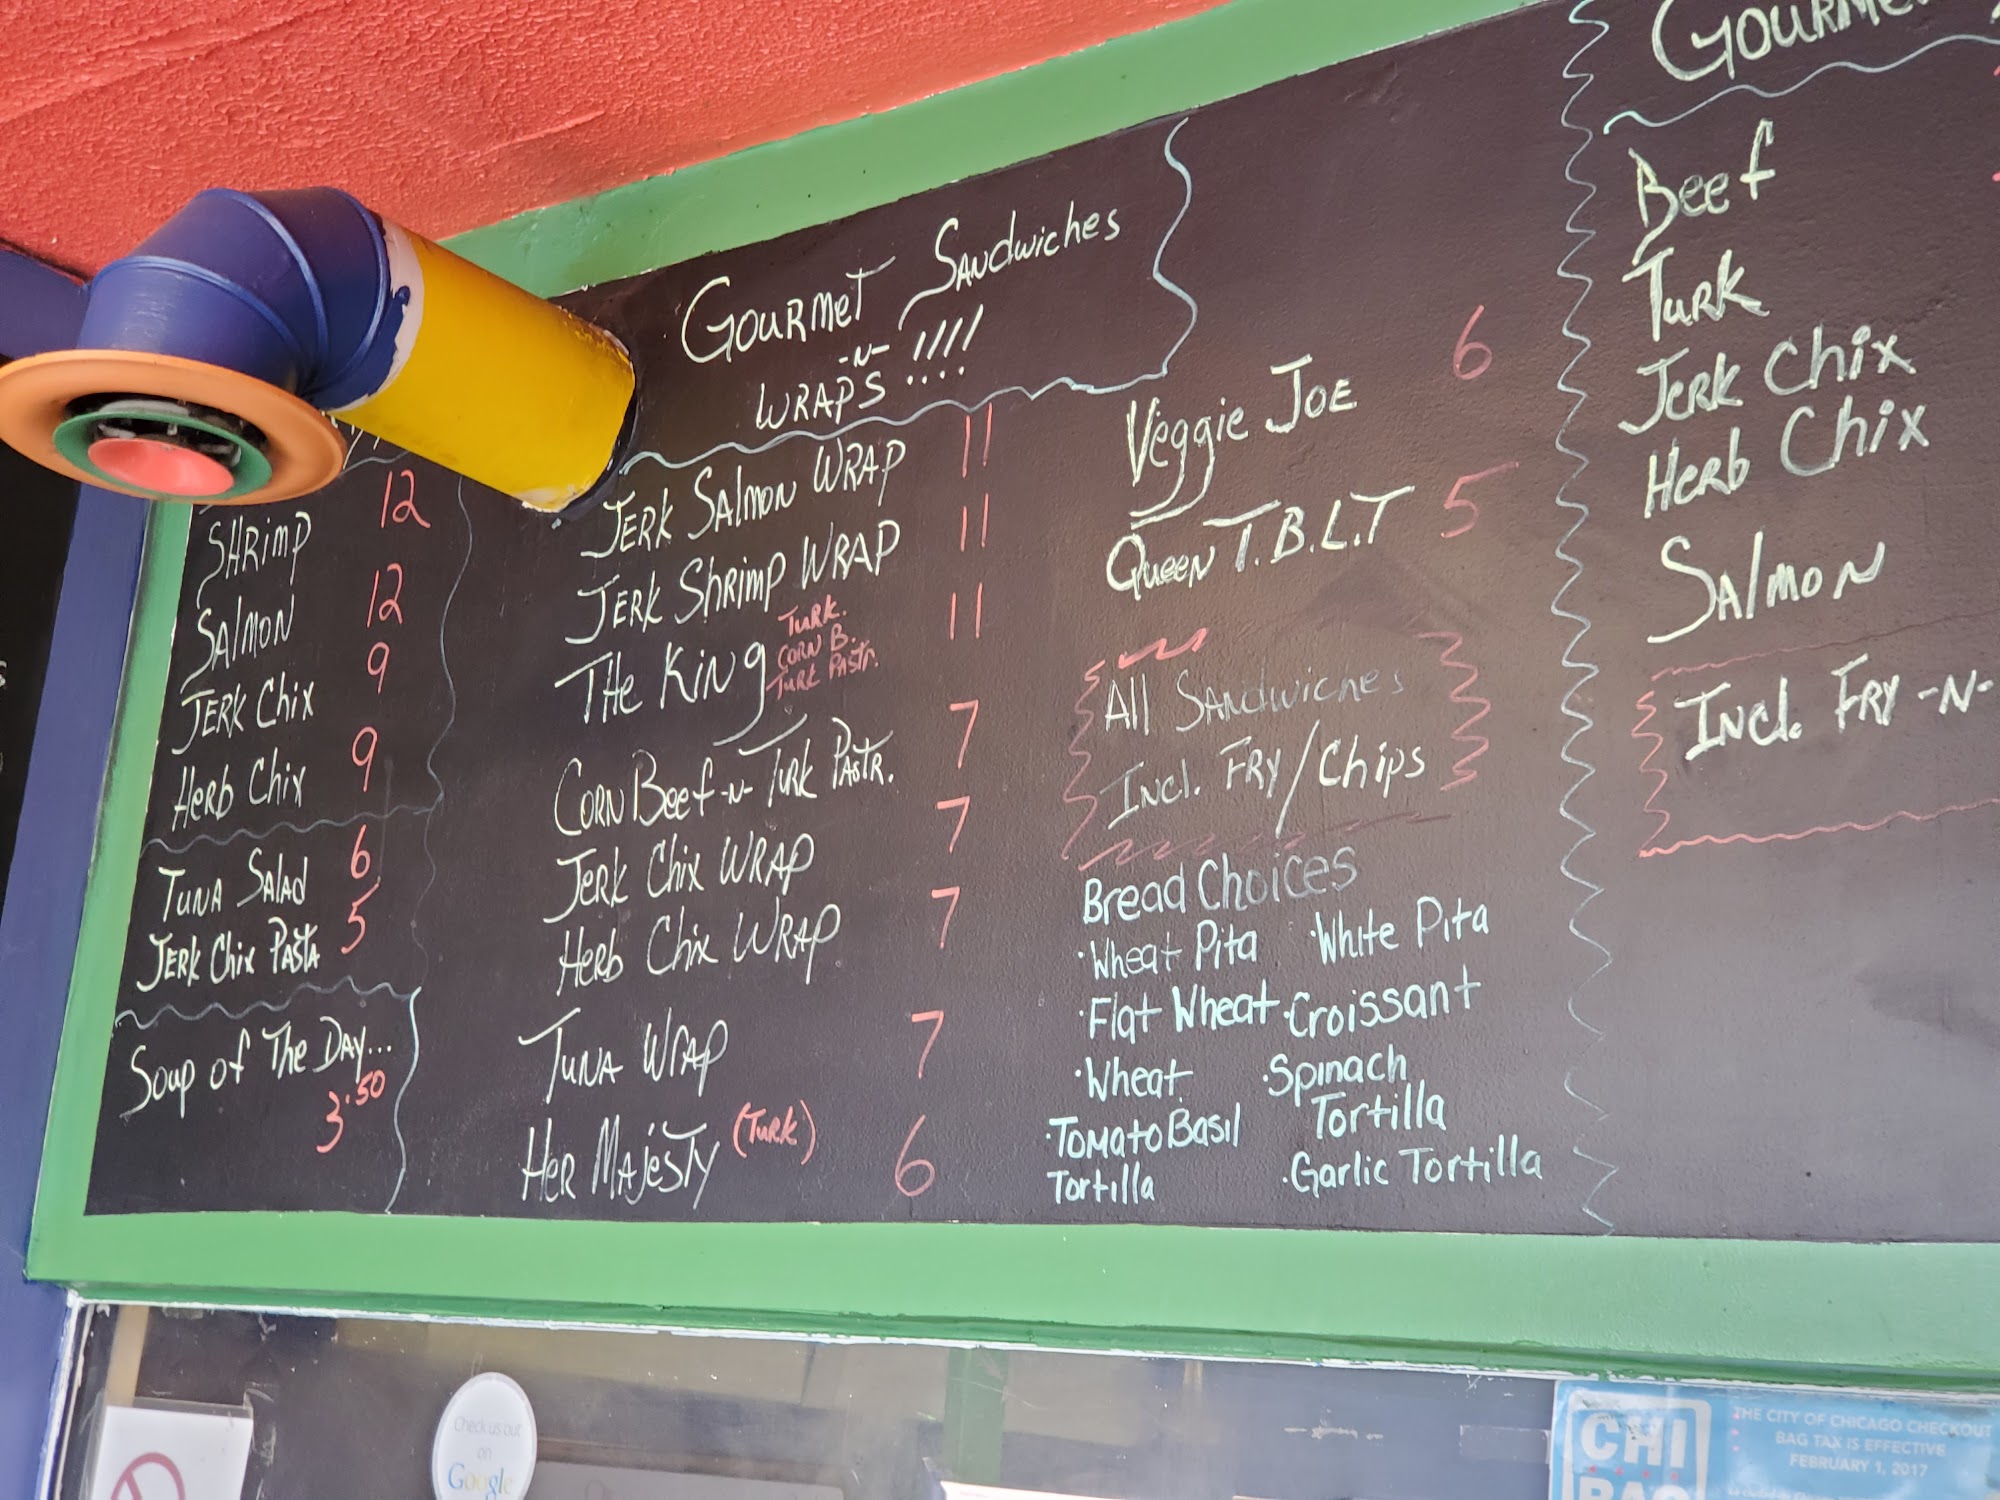 SHRimp 12
SAlmON 12
JERK Chix 9
HeRb Chix 9
TUNA SAlAd 6
JERK Chix PAstA 5
Soup of The DAY...
3.50
GOURMeT SANdwiches
-N-
WRAPS !!!!
JERK SAlmON WRAP 11
JERK ShRimp WRAP 11
THe KiNg TuRK. CORN B. TuRK PAStr. 11
CORN Beef -N- TuRK PAStR. 7
JeRK Chix WRAP 7
HeRb Chix WRAP 7
TUNA WRAP 7
HeR MAjesTY (TuRK) 6
Veggie JOE 6
QueeN T.B.L.T 5
All SANdwiches
INcl. FRY/Chips
Bread Choices
·Wheat Pita ·White Pita
·Flat Wheat ·Croissant
·Wheat ·Spinach
Tortilla
·TomatoBasil
Tortilla
·Garlic Tortilla
Beef
TuRK
JeRK Chix
HeRb Chix
SAlmON
INcl. FRY -N-
Check us out
on
Google
CHI
BAG
THE CITY OF CHICAGO CHECKOUT
BAG TAX IS EFFECTIVE
FEBRUARY 1, 2017